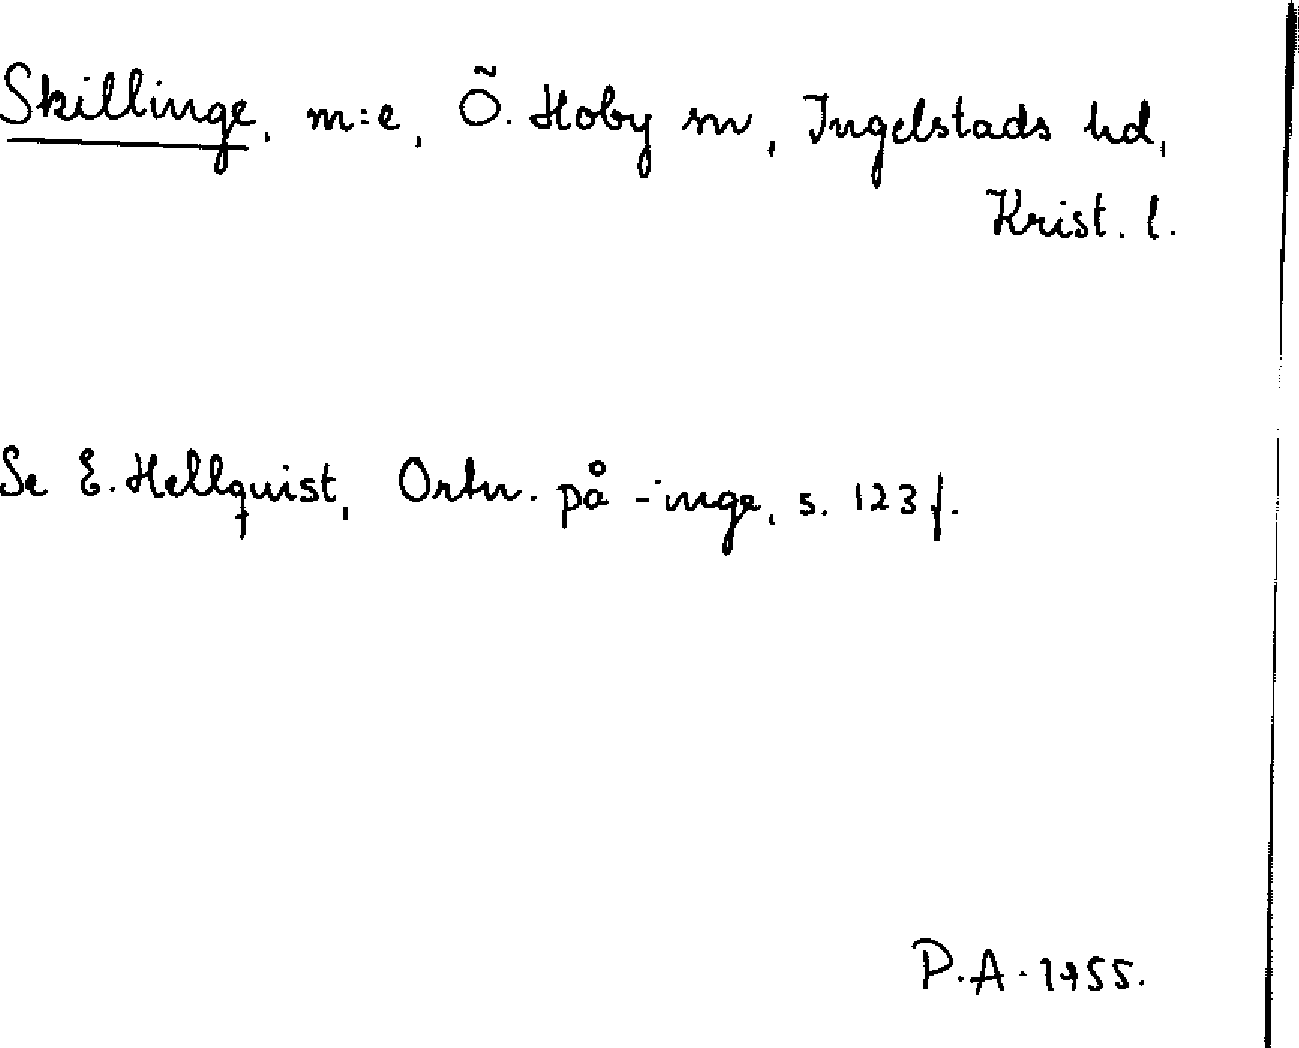 Skillinge, m:e, Ö. Hoby sn, Ingelstads hd,
Krist. l.
Se E. Hellquist, Ortn. på -inge, s. 123 f.
P.A. 1955.